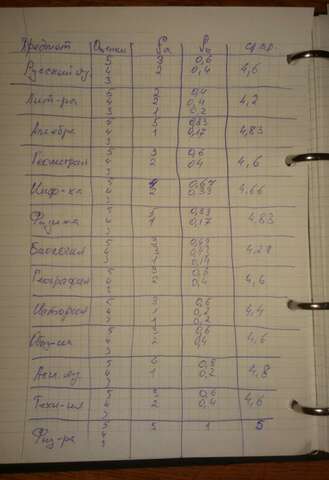 Предмет Оценки fa fo ср. ар.
Русский яз. 5 3 0,6
4 2 0,4 4,6
3
Лит-ра 5 2 0,4
4 2 0,4 4,2
3 1 0,2
Алгебра 5 5 0,83
4 1 0,17 4,83
3
Геометрия 5 3 0,6
4 2 0,4 4,6
3
Инф-ка 5 4 0,67
4 2 0,33 4,66
3
Физика 5 5 0,83
4 1 0,17 4,83
3
Биология 5 3 0,43
4 3 0,43 4,29
3 1 0,14
География 5 3 0,6
4 2 0,4 4,6
3
История 5 3 0,6
4 1 0,2 4,4
3 1 0,2
Общ-ия 5 3 0,6
4 2 0,4 4,6
3
Анг. яз. 5 4 0,8
4 1 0,2 4,8
3
Техн-ия 5 3 0,6
4 2 0,4 4,6
3
Физ-ра 5 5 1 5
4
3